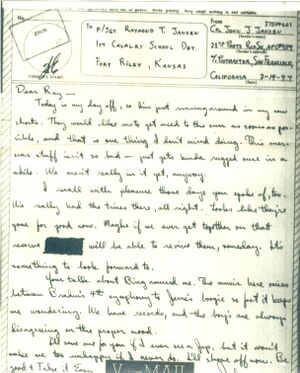 To P/Sgt Raymond T. Jansen
1st Cavalry School Det.
Fort Riley, Kansas
From
Cpl John J. Jansen
(Sender's name)
(Sender's address)
℅ Postmaster, San Francisco,
California 2-19-44
Dear Ray—
Today is my day off, so I'm just running around in my
shorts. They would like us to get used to the sun as soon as pos-
sible, and that is one thing I don't mind doing. This over-
seas stuff isn't so bad — just gets kinda rugged once in a
while. We aren't really in it yet, anyway.
I recall with pleasure those days you spoke of, too.
We really had the times there, all right. Looks like they're
gone for good now. Maybe if we ever get together on that
reserve will be able to revive them, someday. It's
something to look forward to.
You talk about Bing around us. The music here varies
between Brahm's 4th symphony to Jane's boogie so put it keeps
me wondering. We have records, and the boys are always
disagreeing on the proper mood.
I'll save one for you if I ever see a Jap, but it won't
make me too unhappy if I never do. I'll slope off now. Be
good & Take it Easy